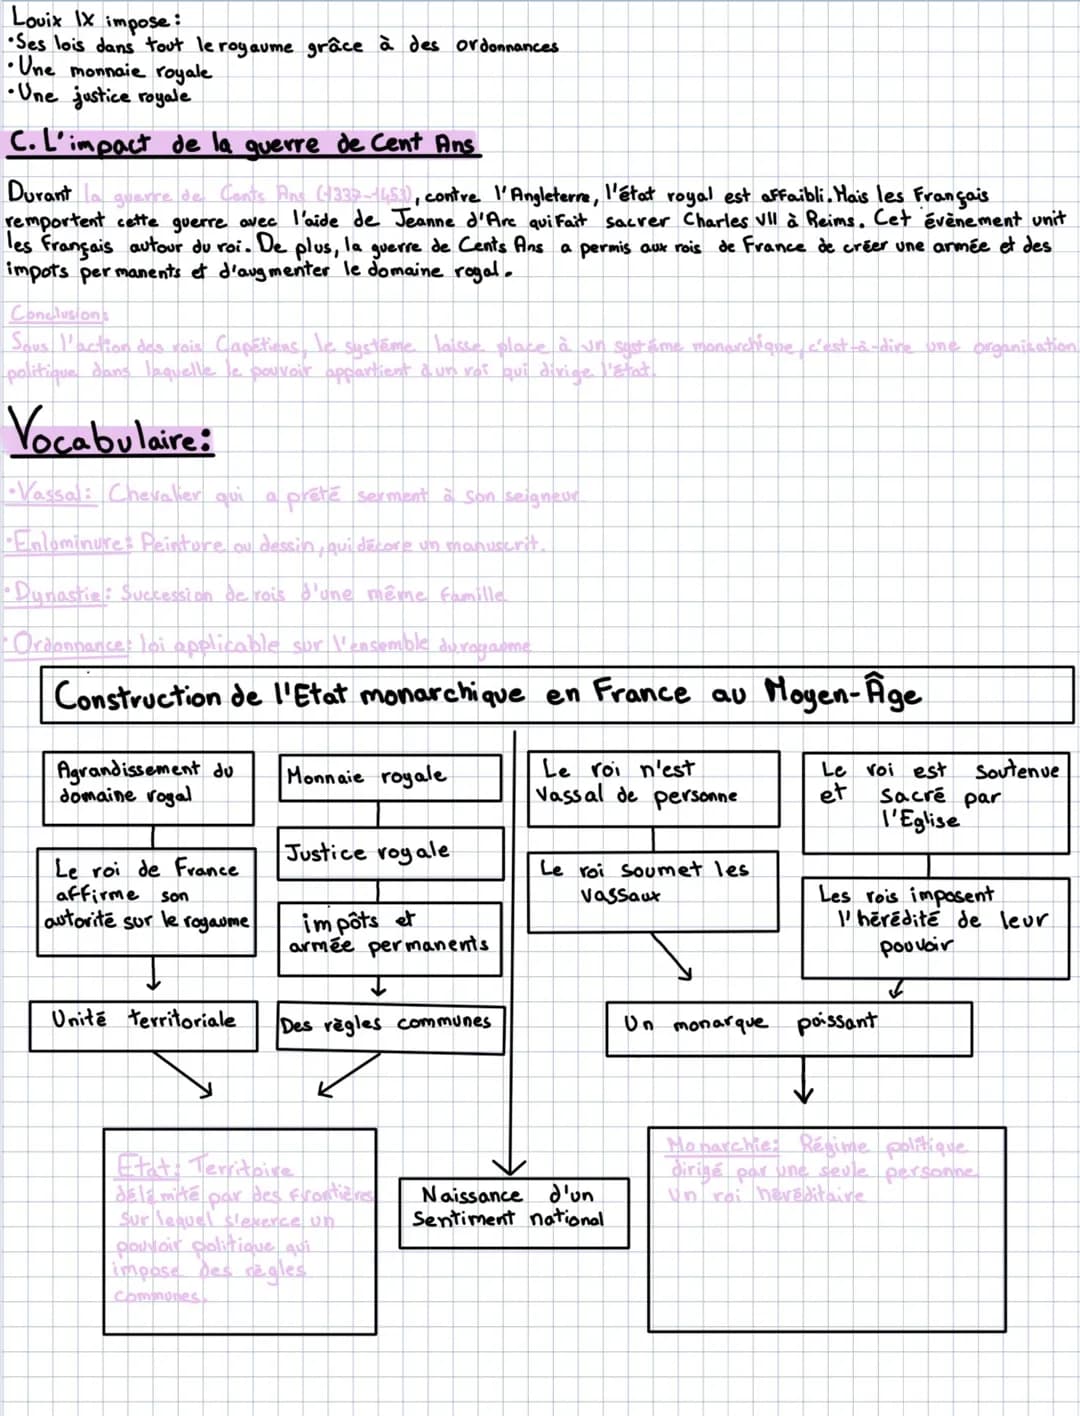 Louix IX impose:
•Ses lois dans tout le royaume grâce à des ordonnances
•Une monnaie royale
•Une justice royale
C. L'impact de la guerre de Cent Ans
Durant la guerre de Cents Ans (1337-1453), contre l'Angleterre, l'état royal est affaibli. Mais les Français
remportent cette guerre avec l'aide de Jeanne d'Arc qui fait sacrer Charles VII à Reims. Cet évènement unit
les français autour du roi. De plus, la guerre de Cents Ans a permis aux rois de France de créer une armée et des
impots permanents et d'augmenter le domaine royal.
Conclusion:
Sous l'action des rois Capétiens, le système laisse place à un système monarchique, c'est-à-dire une organisation
politique dans laquelle le pouvoir appartient à un roi qui dirige l'État.
Vocabulaire:
•Vassal: Chevalier qui a prété serment à son seigneur
•Enlominure: Peinture ou dessin, qui décore un manuscrit.
•Dynastie: Succession de rois d'une même famille
•Ordonnance: loi applicable sur l'ensemble du royaume
Construction de l'Etat monarchique en France au Moyen-Âge
Agrandissement du
domaine royal
Le roi de France
affirme son
autorité sur le royaume
Unité territoriale
Monnaie royale
Justice royale
impôts et
armée permanents
Des règles communes
Le roi n'est
vassal de personne
Le roi soumet les
vassaux
Le roi est soutenue
et sacré par
l'Eglise
Les rois imposent
l'hérédité de leur
pouvoir
Un monarque poissant
Etat: Territoire
délémité par des frontières
sur lequel s'exerce un
pouvoir politique qui
impose des règles
communes.
Naissance d'un
Sentiment national
Monarchie: Régime politique
dirigé par une seule personne
un roi héréditaire